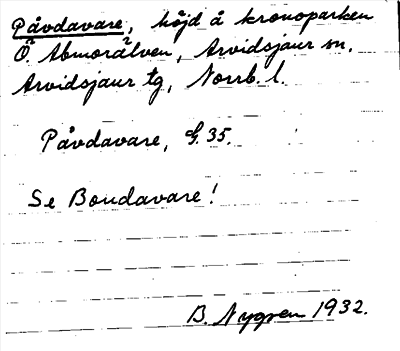 Påvdavare, höjd å kronoparken
Ö. Abmorälven, Arvidsjaur sn.
Arvidsjaur tg, Norrb. l.
Påvdavare, G. 35.
Se Boudavare!
B. Nygren 1932.